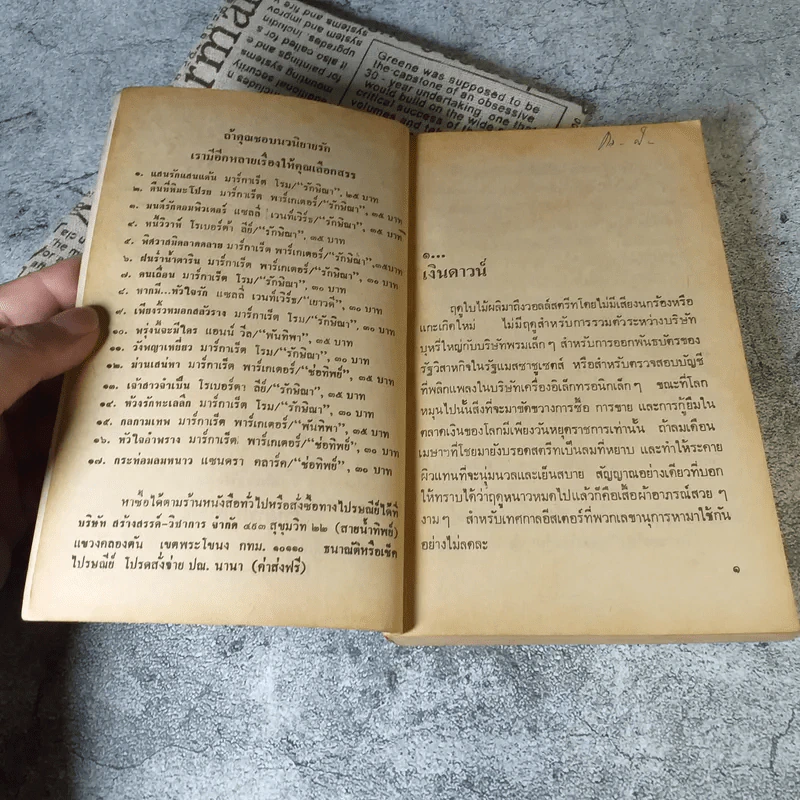 ถ้าคุณชอบนวนิยายรัก
เรามีอีกหลายเรื่องให้คุณเลือกสรร
๑. แสนรักแสนแค้น มาร์กาเร็ต โรม/“รักษิณา”, ๒๕ บาท
๒. คืนที่พิมะโปรย มาร์กาเร็ต พาร์เกเตอร์/“รักษิณา”, ๓๕ บาท
๓. มนต์รักคอมพิวเตอร์ แซลลี่ เวนท์เวิร์ธ/“รักษิณา”, ๓๕ บาท
๔. หนี้วิวาห์ โรเบอร์ต้า ลีย์/“รักษิณา”, ๓๕ บาท
๕. พิศวาสมิคลาดคลาย มาร์กาเร็ต พาร์เกเตอร์/“รักษิณา”, ๓๕ บาท
๖. ฝนร่ำน้ำตาริน มาร์กาเร็ต พาร์เกเตอร์/“รักษิณา”, ๓๐ บาท
๗. คนเถื่อน มาร์กาเร็ต โรม/“รักษิณา”, ๓๕ บาท
๘. หากมี...หัวใจรัก แซลลี่ เวนท์เวิร์ธ/“เยาวดี”, ๓๐ บาท
๙. เพียงรั้วหมอกสลัวราง มาร์กาเร็ต โรม/“รักษิณา”, ๓๐ บาท
๑๐. พรุ่งนี้จะมีใคร แอนน์ วีล/“พันทิพา”, ๓๐ บาท
๑๑. วังพญาเหยี่ยว มาร์กาเร็ต โรม/“รักษิณา”, ๓๕ บาท
๑๒. ม่านเสน่หา มาร์กาเร็ต พาร์เกเตอร์/“ช่อทิพย์”, ๓๕ บาท
๑๓. เจ้าสาวจำเป็น โรเบอร์ตา ลีย์/“รักษิณา”, ๓๐ บาท
๑๔. ห้วงรักทะเลลึก มาร์กาเร็ต โรม/“รักษิณา”, ๓๐ บาท
๑๕. กลกามเทพ มาร์กาเร็ต พาร์เกเตอร์/“พันทิพา”, ๓๕ บาท
๑๖. หัวใจอำพราง มาร์กาเร็ต พาร์เกเตอร์/“ช่อทิพย์”, ๓๐ บาท
๑๗. กระท่อมลมหนาว แซนดรา คลาร์ค/“ช่อทิพย์”, ๓๐ บาท
หาซื้อได้ตามร้านหนังสือทั่วไปหรือสั่งซื้อทางไปรษณีย์ได้ที่
บริษัท สร้างสรรค์-วิชาการ จำกัด ๔๕๓ สุขุมวิท ๒๒ (สายน้ำทิพย์)
แขวงคลองตัน เขตพระโขนง กทม. ๑๐๑๑๐ ธนาณัติหรือเช็ค
ไปรษณีย์ โปรดสั่งจ่าย ปณ. นานา (ค่าส่งฟรี)
๑...
เงินดาวน์
ฤดูใบไม้ผลิมาถึงวอลล์สตรีทโดยไม่มีเสียงนกร้องหรือ
แกะเกิดใหม่ ไม่มีฤดูสำหรับการรวมตัวระหว่างบริษัท
บุหรี่ใหญ่กับบริษัทพรมเล็กๆ สำหรับการออกพันธบัตรของ
รัฐวิสาหกิจในรัฐแมสซาชูเซตส์ หรือสำหรับตรวจสอบบัญชี
ที่พลิกแพลงในบริษัทเครื่องอิเล็กทรอนิกเล็กๆ ขณะที่โลก
หมุนไปนั้นสิ่งที่จะมาขัดขวางการซื้อ การขาย และการกู้ยืมใน
ตลาดเงินของโลกมีเพียงวันหยุดราชการเท่านั้น ถ้าลมเดือน
เมษาฯ ที่โชยมายังบรอดสตรีทเป็นลมที่หยาบ และทำให้ระคาย
ผิวแทนที่จะนุ่มนวลและเย็นสบาย สัญญาณอย่างเดียวที่บอก
ให้ทราบได้ว่าฤดูหนาวหมดไปแล้วก็คือเสื้อผ้าอาภรณ์สวย ๆ
งาม ๆ สำหรับเทศกาลอีสเตอร์ที่พวกเลขานุการหามาใช้กัน
อย่างไม่ลดละ
๑
Greene was supposed to be
the capstone of an obsessive
30 - year undertaking one that
would build on the wide
critical success of the
volumes and